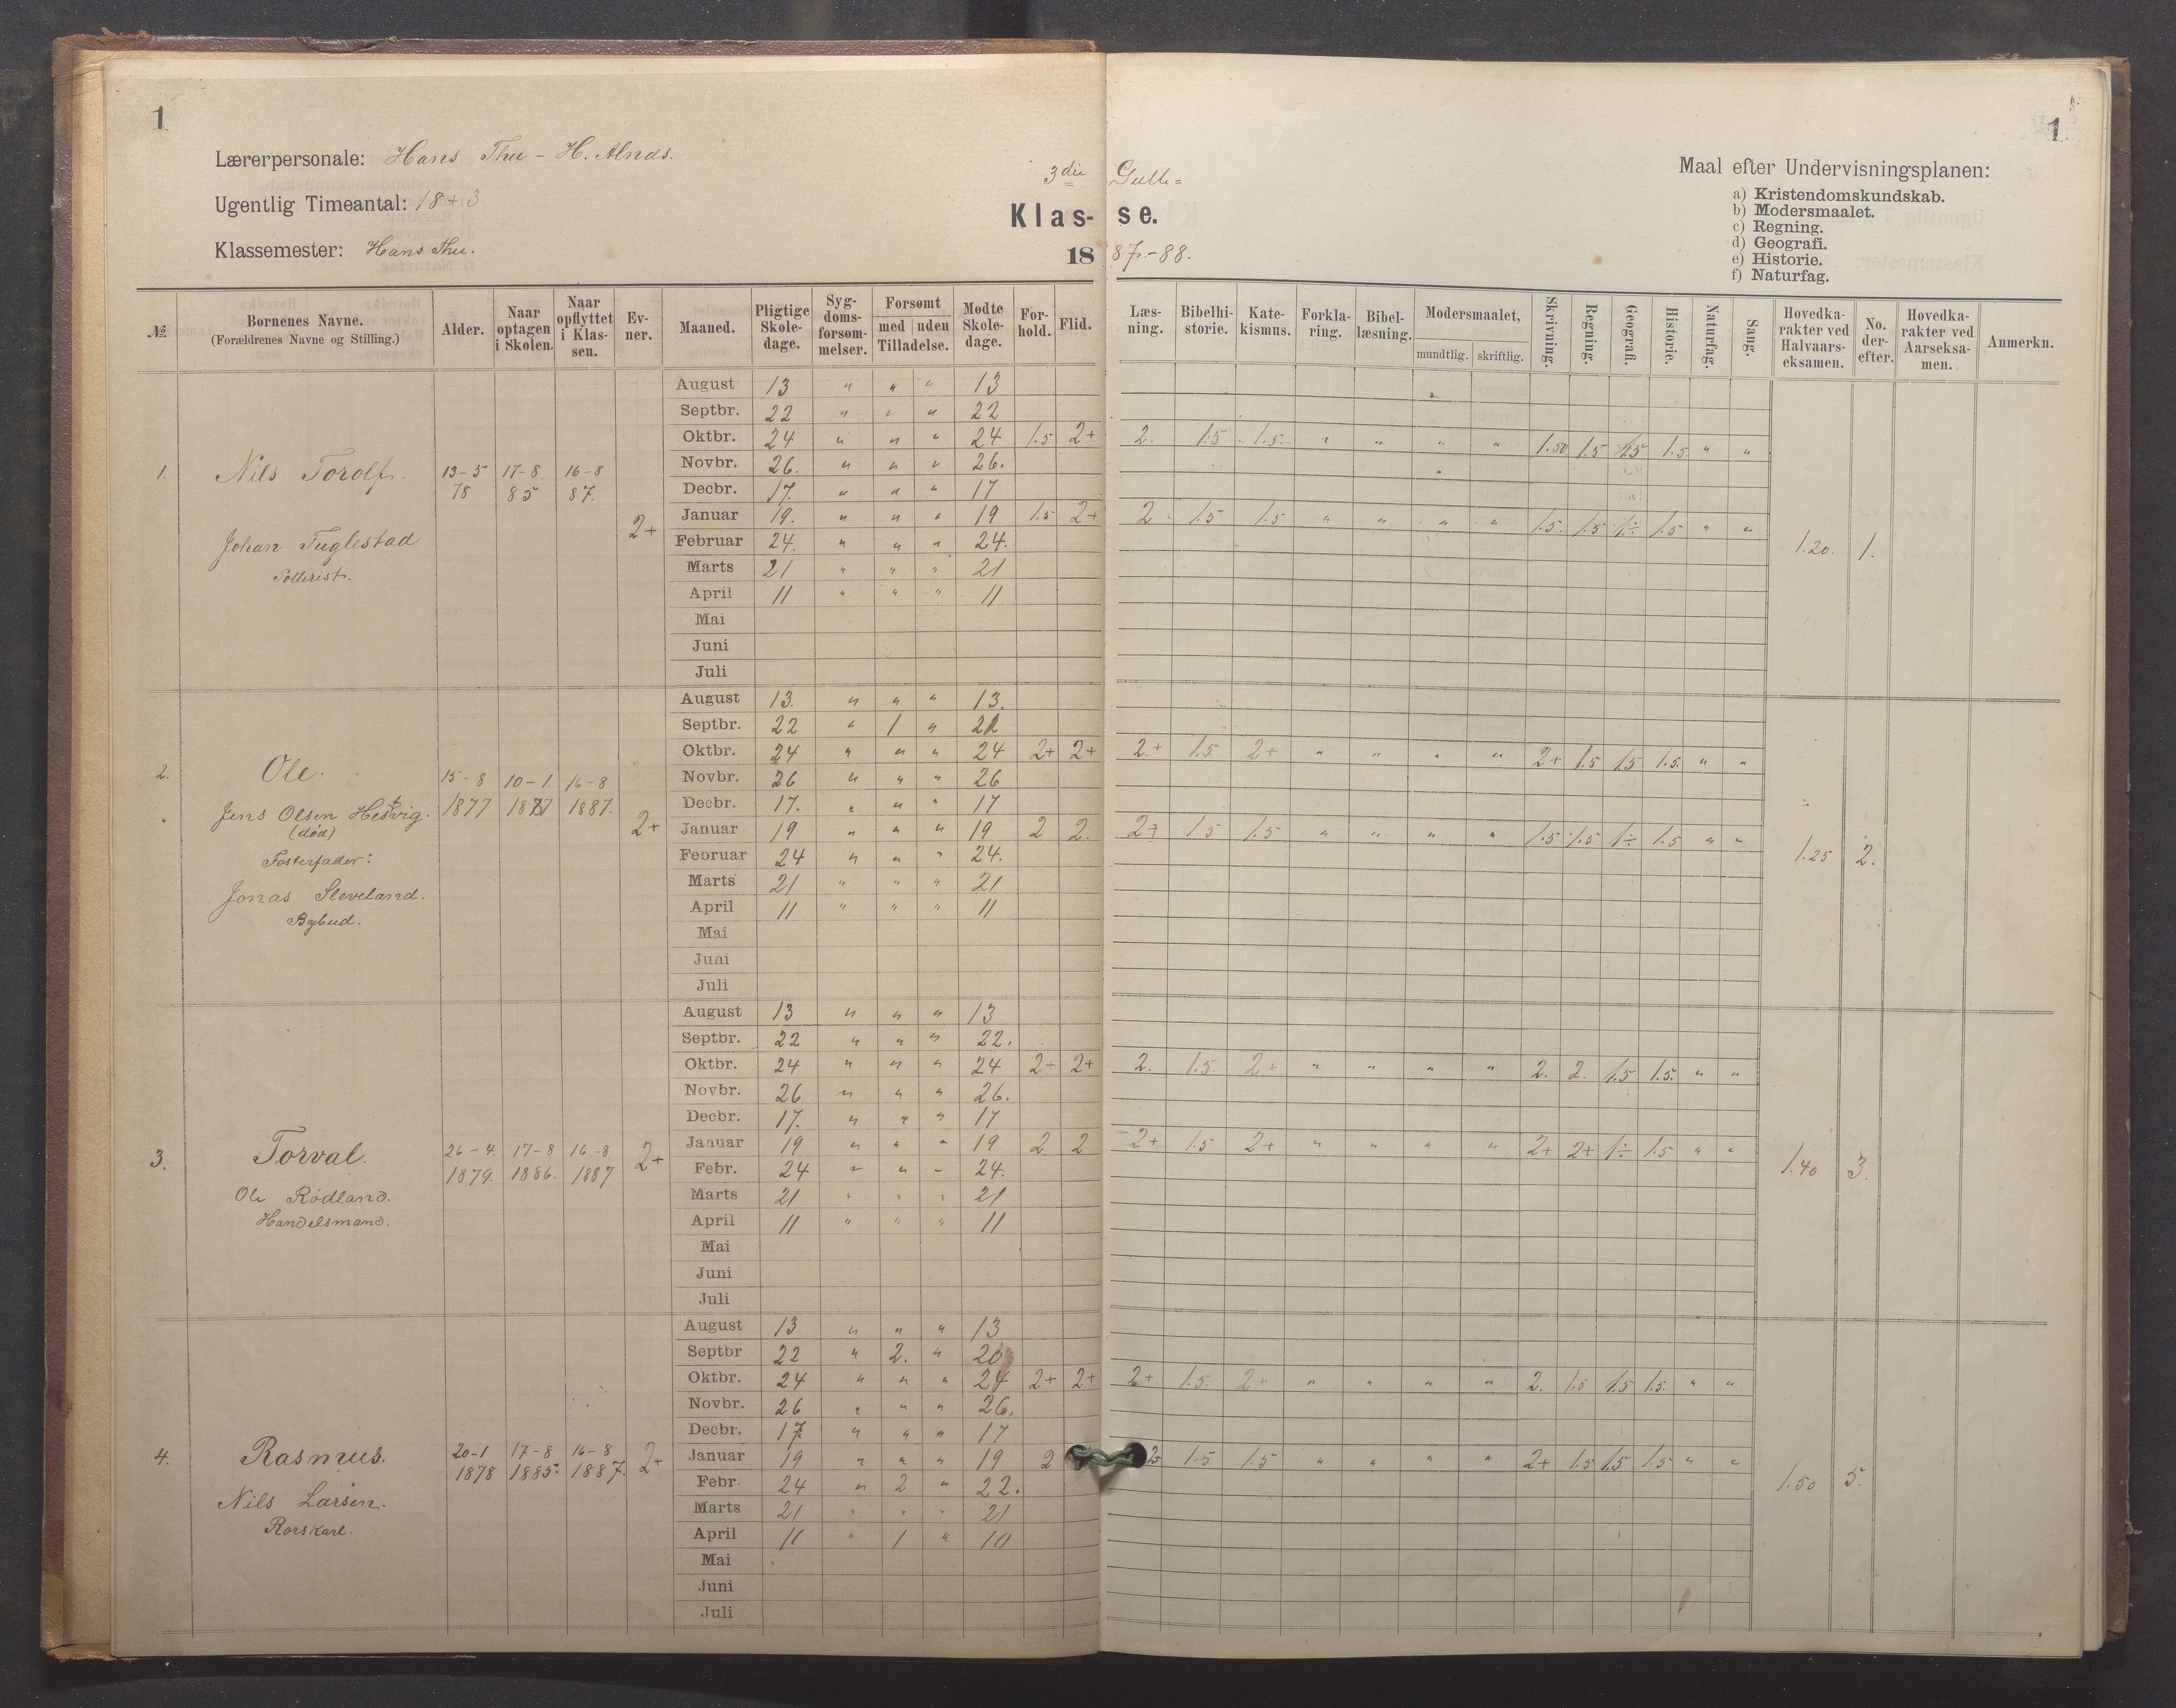 1
1
Lærerpersonale: Hans Thu - H. Alnæs.
Ugentlig Timeantal: 18 + 3
Klassemester: Hans Thu.
3die Gutte=
Klas- se.
18 87.-88.
Maal efter Undervisningsplanen:
a) Kristendomskundskab.
b) Modersmaalet.
c) Regning.
d) Geografi.
e) Historie.
f) Naturfag.
№ Børnenes Navne. (Forældrenes Navne og Stilling.) Alder. Naar optagen i Skolen. Naar opflyttet i Klassen. Evner. Maaned. Pligtige Skoledage. Sygdomsforsømmelser. Forsømt med uden Tilladelse. Mødte Skoledage. Forhold. Flid. Læsning. Bibelhistorie. Katekismus. Forklaring. Bibellæsning. Modersmaalet, mundtlig. skriftlig. Skrivning. Regning. Geografi. Historie. Naturfag. Sang. Hovedkarakter ved Halvaarseksamen. No. derefter. Hovedkarakter ved Aarseksamen. Anmerkn.
1. Nils Torolf. 13-5 78 17-8 85 16-8 87. 2+ 1.20. 1.
Johan Fuglestad
August 13 " " " 13
Septbr. 22 " " " 22
Oktbr. 24 " " " 24 1.5 2+ 2. 1.5 1.5 " " " " 1.50 1.5 1.5 1.5 " "
Novbr. 26. " " " 26.
Decbr. 17. " " " 17
Januar 19. " " " 19 1.5 2+ 2 1.5 1.5 " " " " 1.5. 1.5 1÷ 1.5 " "
Februar 24. " " " 24.
Marts 21 " " " 21
April 11 " " " 11
Mai
Juni
Juli
2. Ole. 15-8 1877 10-1. 1887 16-8 1887. 2+ 1.25 2.
Jens Olsen Hestvig.
(død)
Fosterfader:
Jonas Sleveland.
Bybud.
August 13. " " " 13.
Septbr. 22 " 1 " 21
Oktbr. 24 " " " 24 2+ 2+ 2.+ 1.5 2+ " " " " 2+ 1.5 1.5 1.5. " "
Novbr. 26 " " " 26
Decbr. 17. " " " 17
Januar 19 " " " 19 2 2. 2+ 1.5 1.5 " " " " 1.5 1.5 1÷ 1.5 " "
Februar 24 " " " 24.
Marts 21 " " " 21
April 11 " " " 11
Mai
Juni
Juli
3. Torval. 26-4. 1879. 17-8 1886. 16-8 1887 2+ 1.40 3.
Ole Rødland.
Handelsmand.
August 13 " " " 13
Septbr. 22 " " " 22.
Oktbr. 24 " " " 24 2+ 2+ 2. 1.5. 2+ " " " " 2. 2. 1.5 1.5. " "
Novbr. 26 " " " 26.
Decbr. 17. " " " 17
Januar 19 " " " 19 2 2 2+ 1.5 2+ " " " " 2+ 2+ 1÷ 1.5 " "
Febr. 24 " " " 24.
Marts 21 " " " 21
April 11 " " " 11
Mai
Juni
Juli
4. Rasmus. 20-1 1878 17-8 1885. 16-8 1887. 2+ 1.50 5.
Nils Larsen.
Rorskarl.
August 13 " " " 13
Septbr 22 " 2. " 20
Oktbr. 24 " " " 24 2+ 2+ 2+ 1.5. 2+ " " " " 2. 1.5 1.5 1.5. " "
Novbr. 26 " " " 26.
Decbr. 17. " " " 17
Januar 19 " " " 19 2 1.5 1.5 " " " " 2+ 1.5 1.5 1.5 " "
Febr. 24 " 2 " 22.
Marts 21 " " " 21
April 11 " 1 " 10
Mai
Juni
Juli